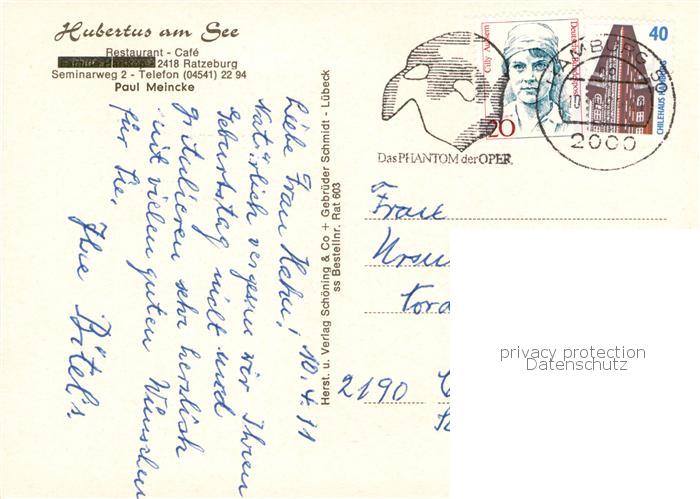 Hubertus am See
Restaurant - Café
2418 Ratzeburg
Seminarweg 2 - Telefon (04541) 22 94
Paul Meincke
Liebe Frau Hahn! 10.4.91
Natürlich vergessen wir Ihren
Geburtstag nicht und
gratulieren sehr herzlich
mit vielen guten Wünschen
für Sie.
Ihre Bötel's
Herst. u. Verlag Schöning & Co + Gebrüder Schmidt - Lübeck
ss Bestellnr. Rat 603
Das PHANTOM der OPER
Cilly Aussem
20
40
CHILEHAUS HAMBURG
HAMBURG
2000
Frau
Ursu
2190
privacy protection
Datenschutz